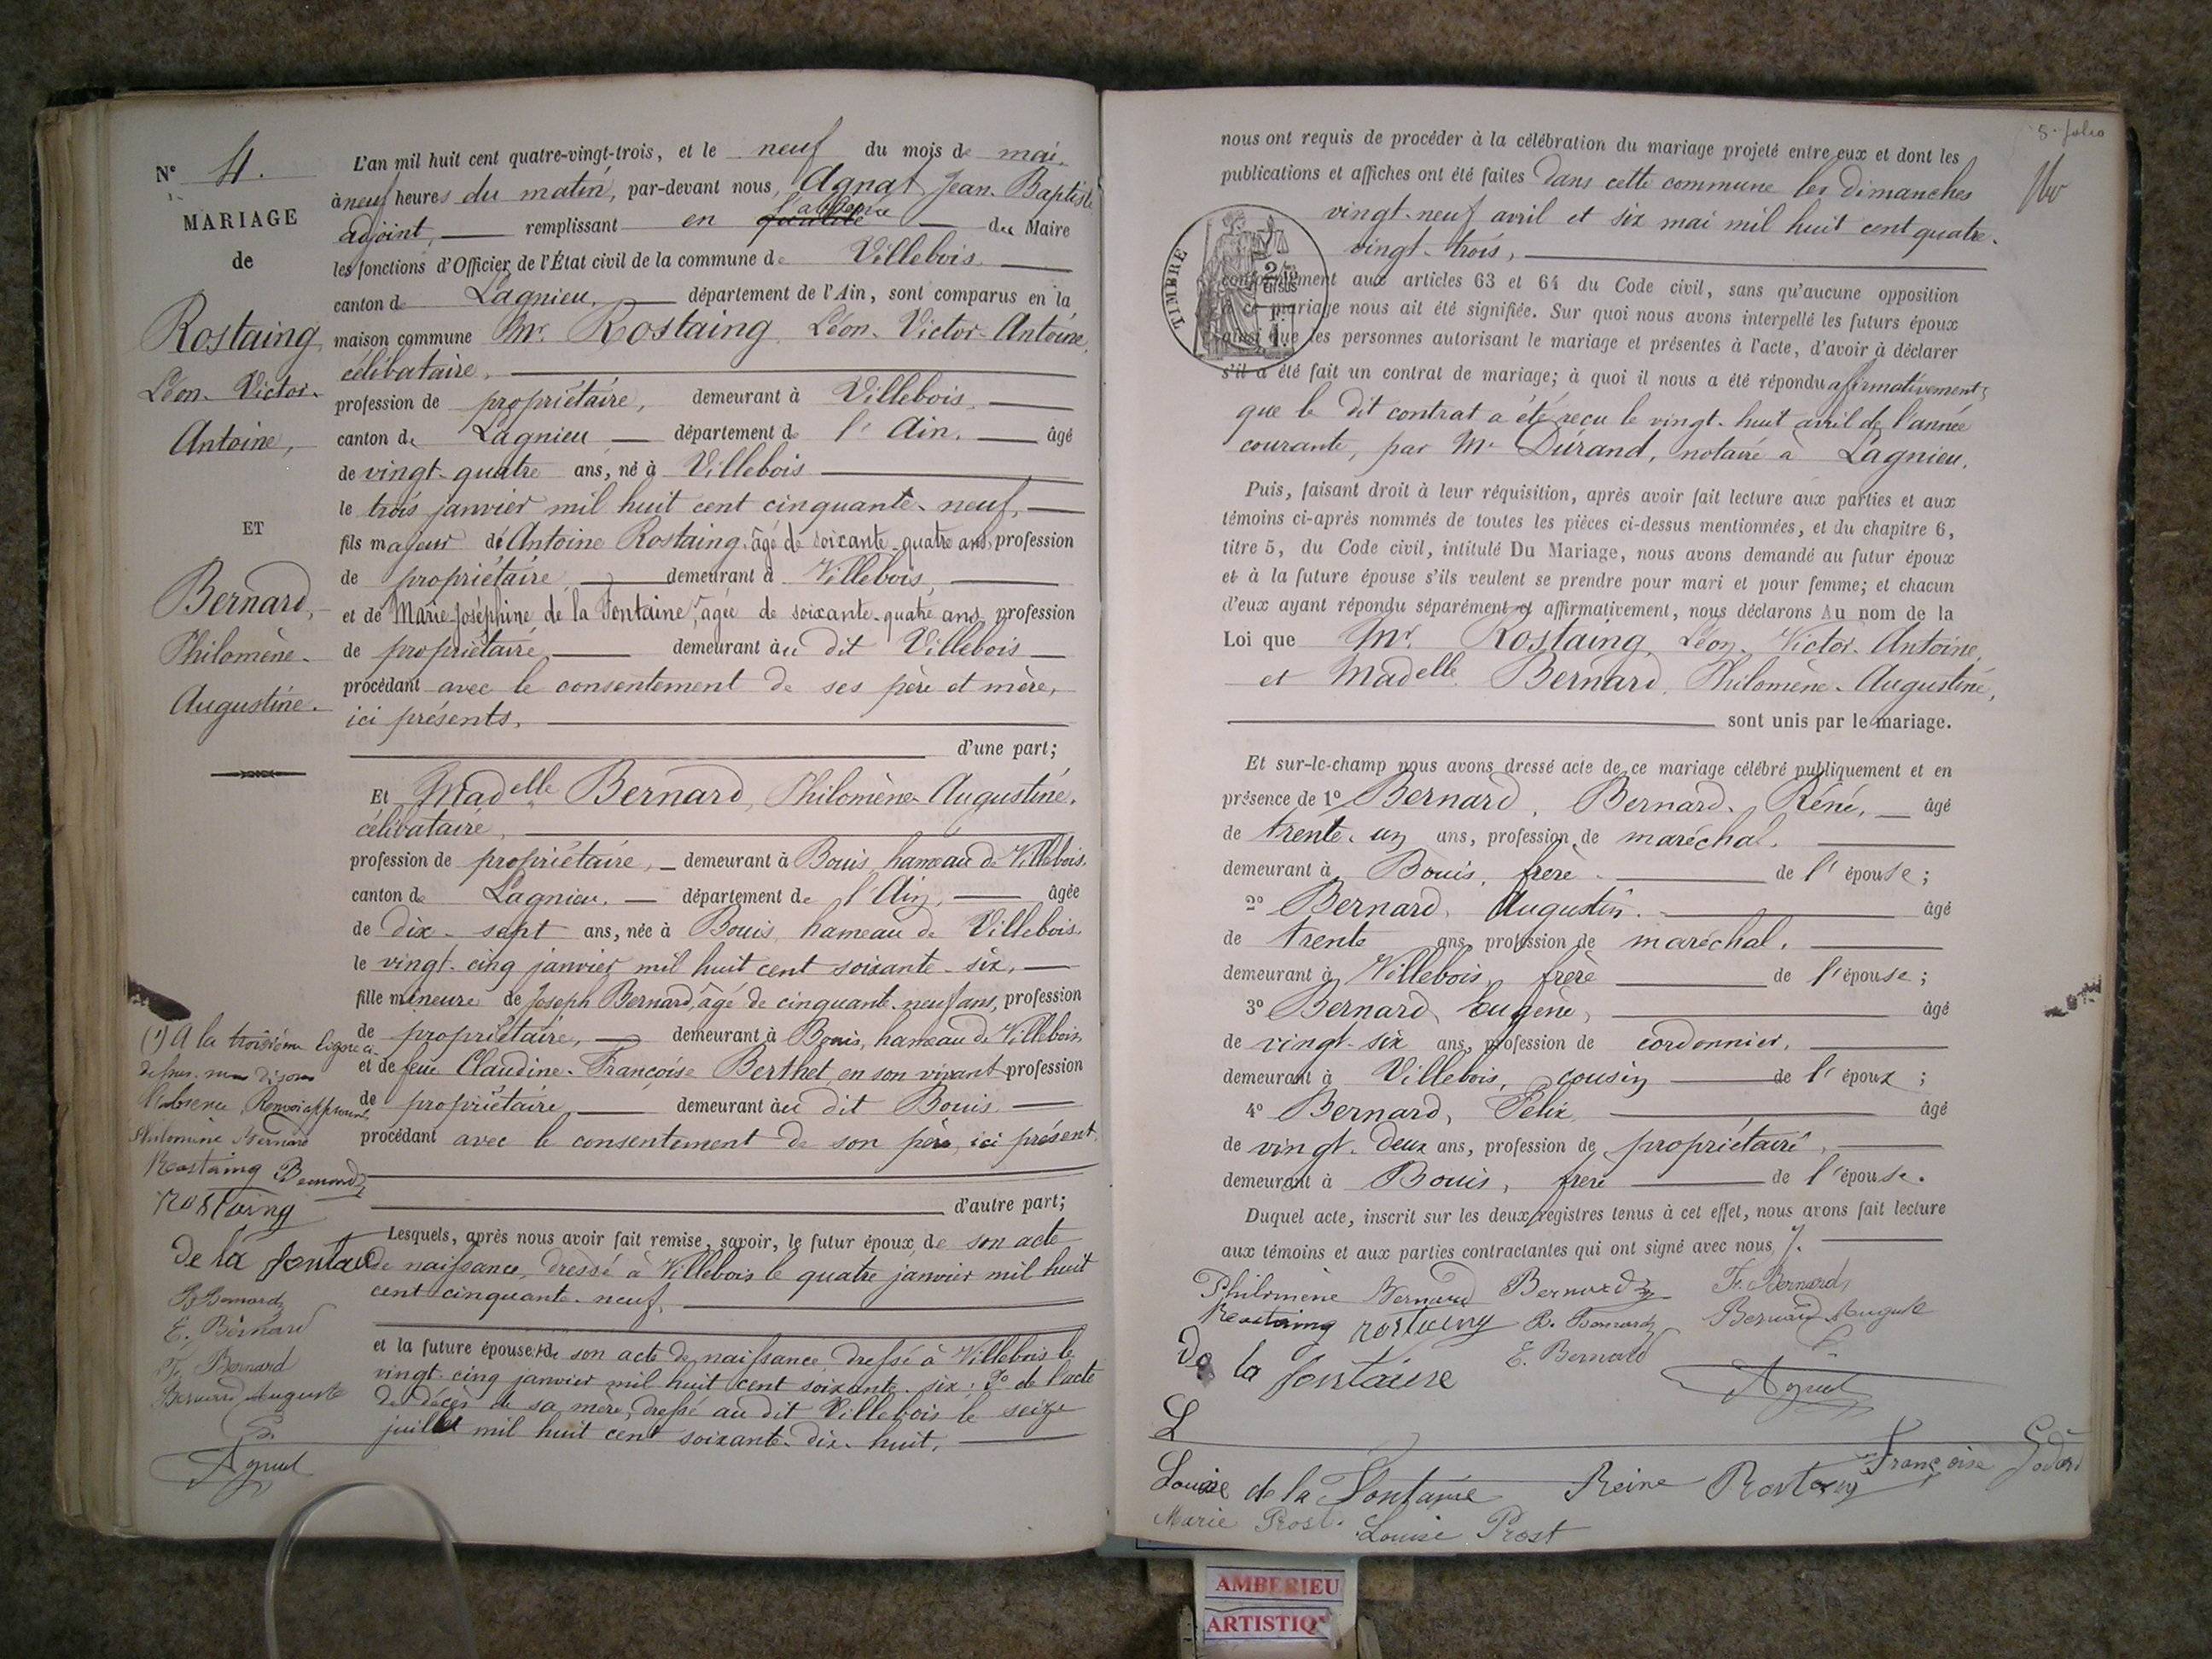 N° 4.
MARIAGE
de
Rostaing,
Léon-Victor-
Antoine,
ET
Bernard,
Philomène-
Augustine.
L'an mil huit cent quatre-vingt-trois, et le neuf du mois de mai,
à neuf heures du matin, par-devant nous, Agnat Jean-Baptiste
adjoint, remplissant en l'absence du Maire
les fonctions d'Officier de l'État civil de la commune de Villebois,
canton de Lagnieu, département de l'Ain, sont comparus en la
maison commune Mr. Rostaing, Léon-Victor-Antoine,
célibataire,
profession de propriétaire, demeurant à Villebois,
canton de Lagnieu département de l'Ain, âgé
de vingt-quatre ans, né à Villebois
le trois janvier mil huit cent cinquante-neuf,
fils majeur de Antoine Rostaing, âgé de soixante-quatre ans, profession
de propriétaire demeurant à Villebois,
et de Marie-Joséphine de la Fontaine, agée de soixante-quatre ans, profession
de propriétaire, demeurant au dit Villebois
procédant avec le consentement de ses père et mère,
ici présents,
d'une part;
Et Madelle Bernard, Philomène-Augustine,
célibataire,
profession de propriétaire, demeurant à Bouis, hameau de Villebois,
canton de Lagnieu, département de l'Ain, âgée
de dix-sept ans, née à Bouis, hameau de Villebois,
le vingt-cinq janvier mil huit cent soixante-six,
fille mineure de Joseph Bernard, âgé de cinquante-neuf ans, profession
de propriétaire, demeurant à Bouis, hameau de Villebois,
et de feue Claudine-Françoise Berthet, en son vivant profession
de propriétaire demeurant au dit Bouis
procédant avec le consentement de son père, ici présent,
d'autre part;
Lesquels, après nous avoir fait remise, savoir, le futur époux, de son acte
de naissance, dressé à Villebois le quatre janvier mil huit
cent cinquante-neuf,
et la future épouse: 1° de son acte de naissance, dressé à Villebois le
vingt-cinq janvier mil huit cent soixante-six; 2° de l'acte
de décès de sa mère, dressé au dit Villebois le seize
juillet mil huit cent soixante-dix-huit,
(1) A la troisième ligne ci-
dessus nous disons
l'absence, Renvoi approuvé,
Philomène Bernard
Rostaing Bernard
rostaing
de la fontaine
B. Bernard
E. Bernard
F. Bernard
Bernard Auguste
Agnat
5e folio
nous ont requis de procéder à la célébration du mariage projeté entre eux et dont les
publications et affiches ont été faites dans cette commune les dimanches
vingt-neuf avril et six mai mil huit cent quatre-
vingt-trois,
TIMBRE
conformément aux articles 63 et 64 du Code civil, sans qu'aucune opposition
à ce mariage nous ait été signifiée. Sur quoi nous avons interpellé les futurs époux
ainsi que les personnes autorisant le mariage et présentes à l'acte, d'avoir à déclarer
s'il a été fait un contrat de mariage; à quoi il nous a été répondu afirmativement;
que le dit contrat a été reçu le vingt-huit avril de l'année
courante, par Me Durand, notaire à Lagnieu.
Puis, faisant droit à leur réquisition, après avoir fait lecture aux parties et aux
témoins ci-après nommés de toutes les pièces ci-dessus mentionnées, et du chapitre 6,
titre 5, du Code civil, intitulé Du Mariage, nous avons demandé au futur époux
et à la future épouse s'ils veulent se prendre pour mari et pour femme; et chacun
d'eux ayant répondu séparément et affirmativement, nous déclarons Au nom de la
Loi que Mr. Rostaing, Léon-Victor-Antoine,
et Madelle Bernard, Philomène-Augustine,
sont unis par le mariage.
Et sur-le-champ nous avons dressé acte de ce mariage célébré publiquement et en
présence de 1° Bernard, Bernard-Réné, âgé
de trente-un ans, profession de maréchal,
demeurant à Bouis, frère de l'épouse;
2° Bernard, Augustin, âgé
de trente ans, profession de maréchal,
demeurant à Villebois, frère de l'épouse;
3° Bernard, Eugène, âgé
de vingt-six ans, profession de cordonnier,
demeurant à Villebois, cousin de l'époux;
4° Bernard, Félix, âgé
de vingt-deux ans, profession de propriétaire,
demeurant à Bouis, frère de l'épouse.
Duquel acte, inscrit sur les deux registres tenus à cet effet, nous avons fait lecture
aux témoins et aux parties contractantes qui ont signé avec nous.
Philomène Bernard Bernard F. Bernard
Rostaing rostaing B. Bernard Bernard Auguste
De la fontaine E. Bernard
Agnat
L
Louise de la Fontaine Reine Rostaing Françoise Godard
Marie Prost. Louise Prost
AMBERIEU
ARTISTIQ